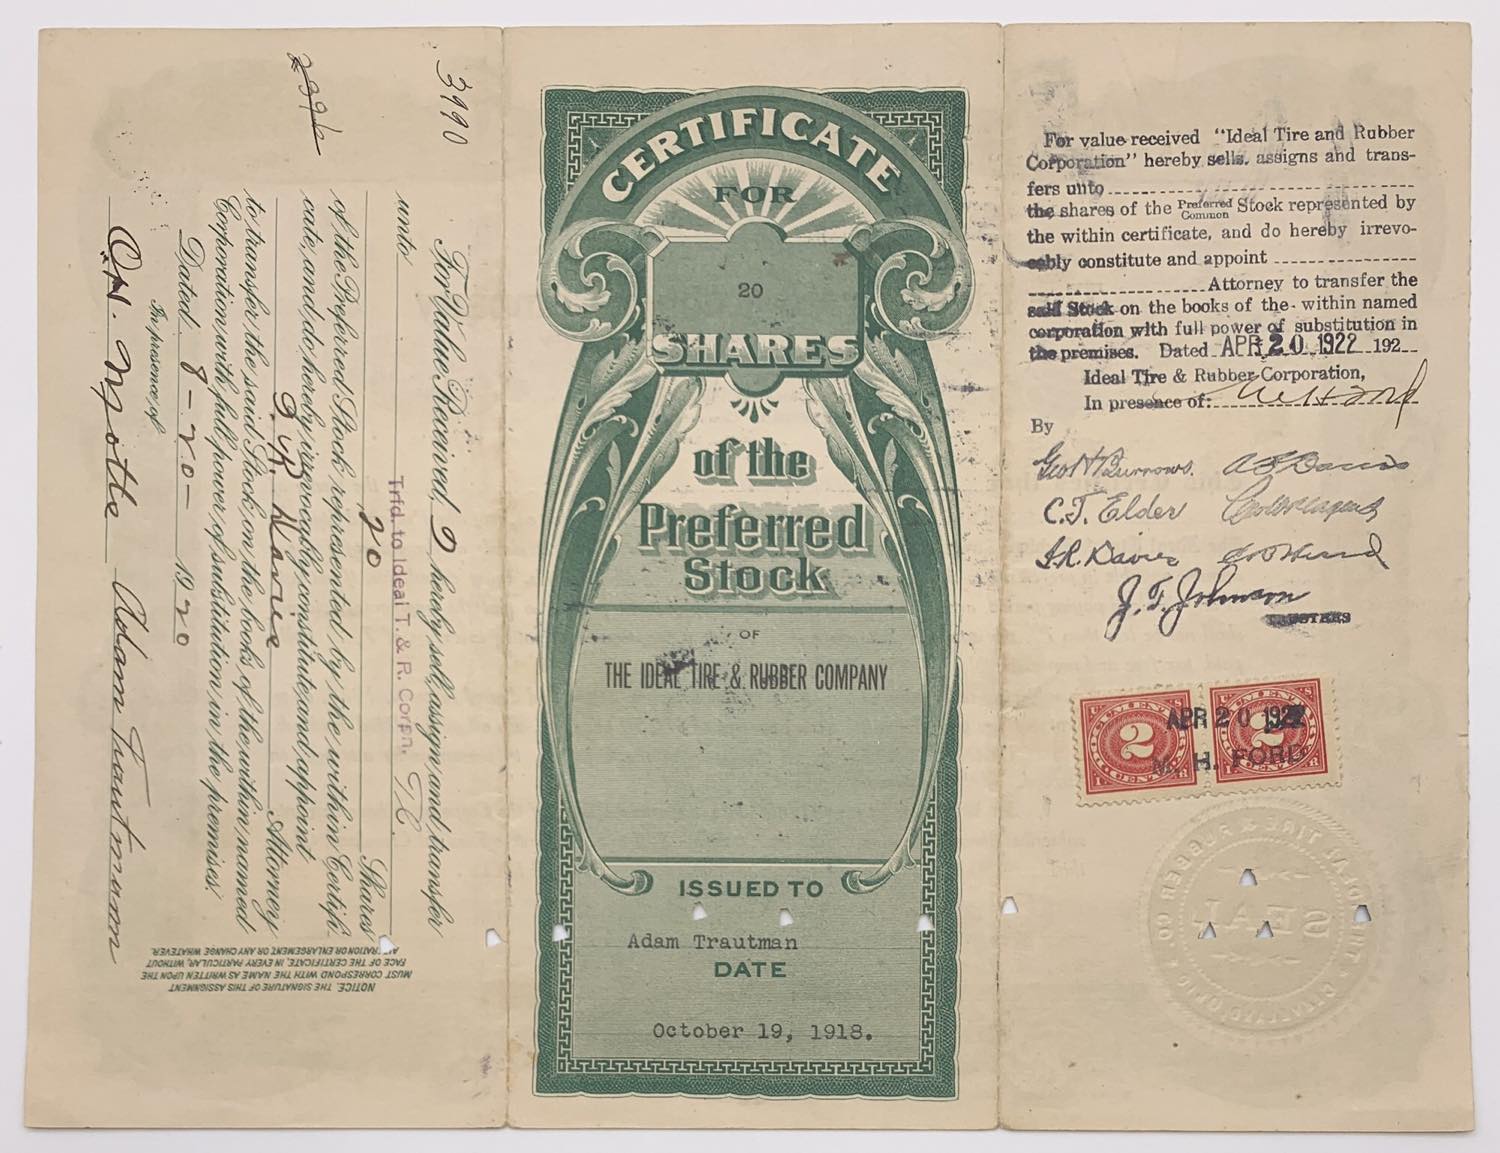 3990
2396
For Value Received, I hereby sell, assign and transfer
unto Trfd. to Ideal T. & R. Corpn.
20 Shares
of the Preferred Stock represented by the within Certifi-
cate, and do hereby irrevocably constitute and appoint
D. R. Davies Attorney
to transfer the said Stock on the books of the within named
Corporation with full power of substitution in the premises.
Dated 8-20- 1920
In presence of
Adam Trautmann
NOTICE. THE SIGNATURE OF THIS ASSIGNMENT
MUST CORRESPOND WITH THE NAME AS WRITTEN UPON THE
FACE OF THE CERTIFICATE, IN EVERY PARTICULAR, WITHOUT
ALTERATION OR ENLARGEMENT OR ANY CHANGE WHATEVER.
CERTIFICATE
FOR
20
SHARES
of the
Preferred
Stock
OF
THE IDEAL TIRE & RUBBER COMPANY
ISSUED TO
Adam Trautman
DATE
October 19, 1918.
For value received "Ideal Tire and Rubber
Corporation" hereby sells, assigns and trans-
fers unto
the shares of the Preferred Common Stock represented by
the within certificate, and do hereby irrevo-
cably constitute and appoint
Attorney to transfer the
said Stock on the books of the within named
corporation with full power of substitution in
the premises. Dated APR 20 1922 192
Ideal Tire & Rubber Corporation,
In presence of:
By
Geo H Burrows.
C. T. Elder
J. R. Davies
J. F. Johnson
TRUSTEES
DOCUMENTARY DOCUMENTARY
2 2
APR 20 1922
M. H. FORD
SEAL